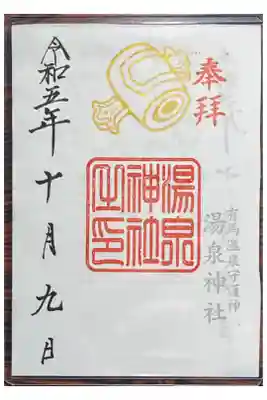 奉拝
有馬温泉守護神
湯泉神社
湯泉神社之印
令和五年十月九日